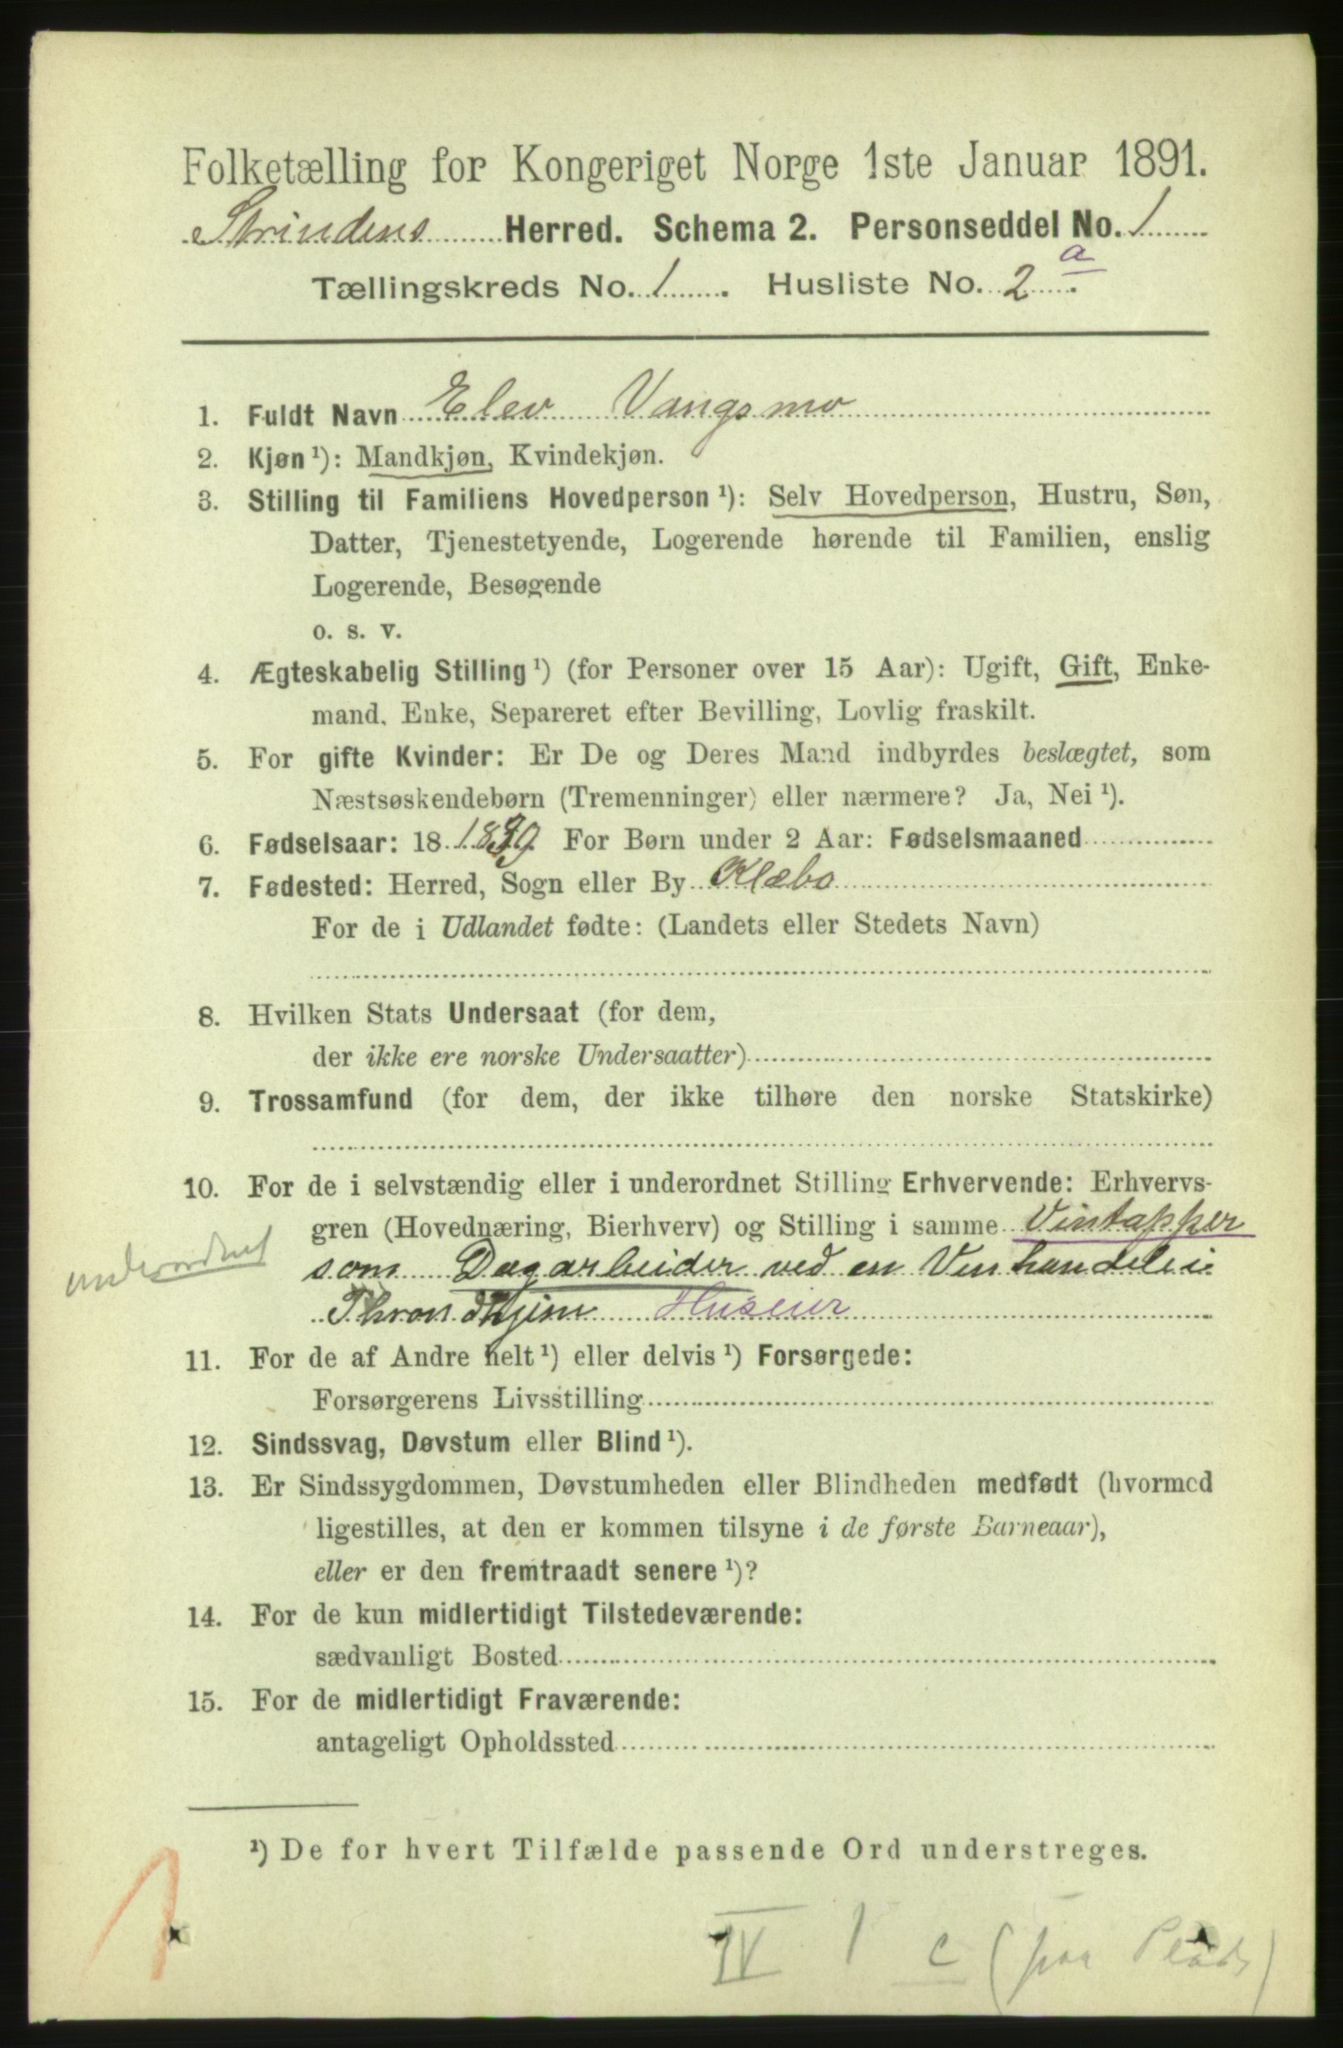 Folketælling for Kongeriget Norge 1ste Januar 1891.
Strindens Herred. Schema 2. Personseddel No. 1
Tællingskreds No. 1. Husliste No. 2 a.
1. Fuldt Navn Elev Vangsmo
2. Kjøn ¹): Mandkjøn, Kvindekjøn.
3. Stilling til Familiens Hovedperson ¹): Selv Hovedperson, Hustru, Søn,
Datter, Tjenestetyende, Logerende hørende til Familien, enslig
Logerende, Besøgende
o. s. v.
4. Ægteskabelig Stilling ¹) (for Personer over 15 Aar): Ugift, Gift, Enke-
mand, Enke, Separeret efter Bevilling, Lovlig fraskilt.
5. For gifte Kvinder: Er De og Deres Mand indbyrdes beslægtet, som
Næstsøskendebørn (Tremenninger) eller nærmere? Ja, Nei ¹).
6. Fødselsaar: 18 1839 For Børn under 2 Aar: Fødselsmaaned
7. Fødested: Herred, Sogn eller By Klæbo
For de i Udlandet fødte: (Landets eller Stedets Navn)
8. Hvilken Stats Undersaat (for dem,
der ikke ere norske Undersaatter)
9. Trossamfund (for dem, der ikke tilhøre den norske Statskirke)
10. For de i selvstændig eller i underordnet Stilling Erhvervende: Erhvervs-
gren (Hovednæring, Bierhverv) og Stilling i samme Vintapper
underordnet
som Dagarbeider ved en Vinhandel i
Throndhjem Huseier
11. For de af Andre helt ¹) eller delvis ¹) Forsørgede:
Forsørgerens Livsstilling
12. Sindssvag, Døvstum eller Blind ¹).
13. Er Sindssygdommen, Døvstumheden eller Blindheden medfødt (hvormed
ligestilles, at den er kommen tilsyne i de første Barneaar),
eller er den fremtraadt senere ¹)?
14. For de kun midlertidigt Tilstedeværende:
sædvanligt Bosted
15. For de midlertidigt Fraværende:
antageligt Opholdssted
¹) De for hvert Tilfælde passende Ord understreges.
1
IV 1 c (paa Plads)